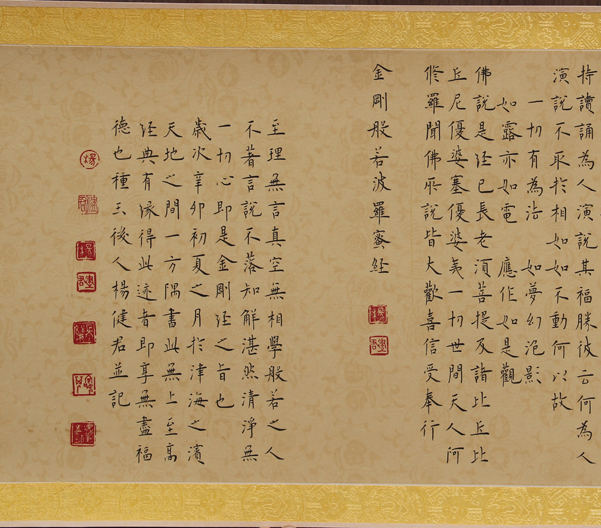 持讀誦為人演說其福勝彼云何為人
演說不取於相如如不動何以故
一切有為法　如夢幻泡影
如露亦如電　應作如是觀
佛說是經已長老須菩提及諸比丘比
丘尼優婆塞優婆夷一切世間天人阿
修羅聞佛所說皆大歡喜信受奉行
金剛般若波羅蜜經
至理無言真空無相學般若之人
不著言說不落知解湛然清淨無
一切心即是金剛經之旨也
歲次辛卯初夏之月於津海之濱
天地之間一方隅書此無上至高
經典有緣得此迹者即享無盡福
德也種玉後人楊健君並記